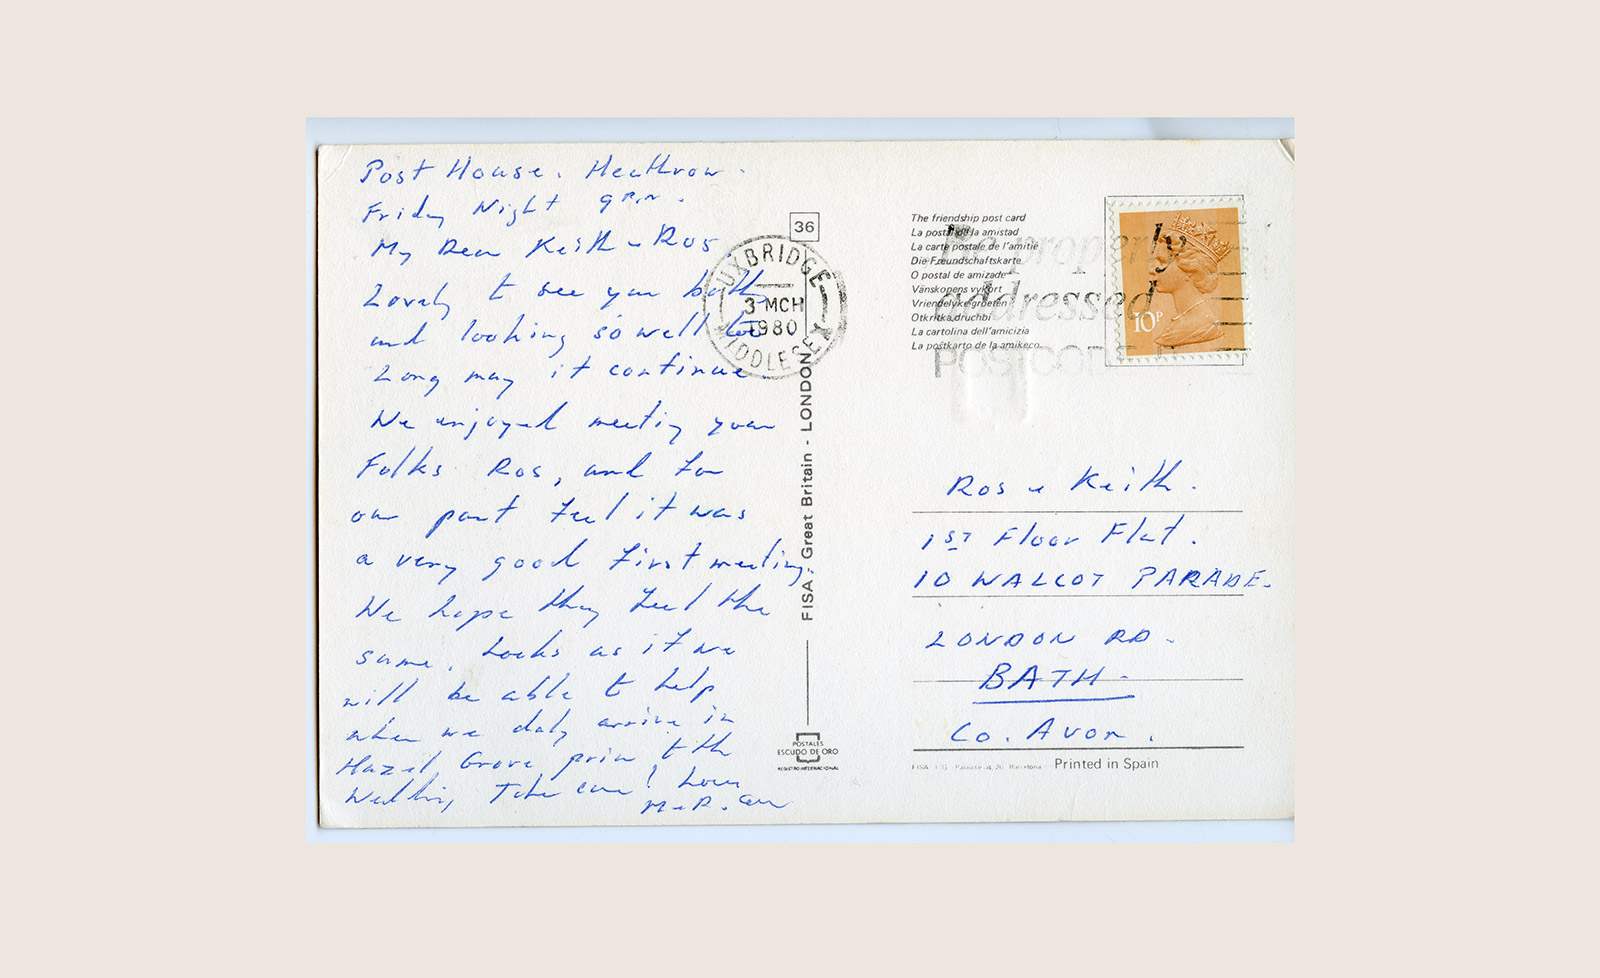 Post House. Heathrow.
Friday Night 9 P.M.
My Dear Keith & Ros
Lovely to see you both
and looking so well too
Long may it continue.
We enjoyed meeting your
Folks Ros, and for
our part feel it was
a very good first meeting.
We hope they feel the
same. Looks as if we
will be able to help
when we duly arrive in
Hazel Grove prior to the
Wedding Take care! Love
M & P.
36
UXBRIDGE
MIDDLESEX
3 MCH
1980
FISA. Great Britain - LONDON
POSTALES
ESCUDO DE ORO
REGISTRO INTERNACIONAL
The friendship post card
La postal de la amistad
La carte postale de l'amitié
Die Freundschaftskarte
O postal de amizade
Vänskopens vykort
Vriendelyke groeten
Otkritka druchbi
La cartolina dell'amicizia
La poŝtkarto de la amikeco
Be properly
addressed
POSTCODE
10P
Ros & Keith.
1ST Floor Flat.
10 WALCOT PARADE.
LONDON RD.
BATH.
Co. Avon.
FISA Barcelona Printed in Spain